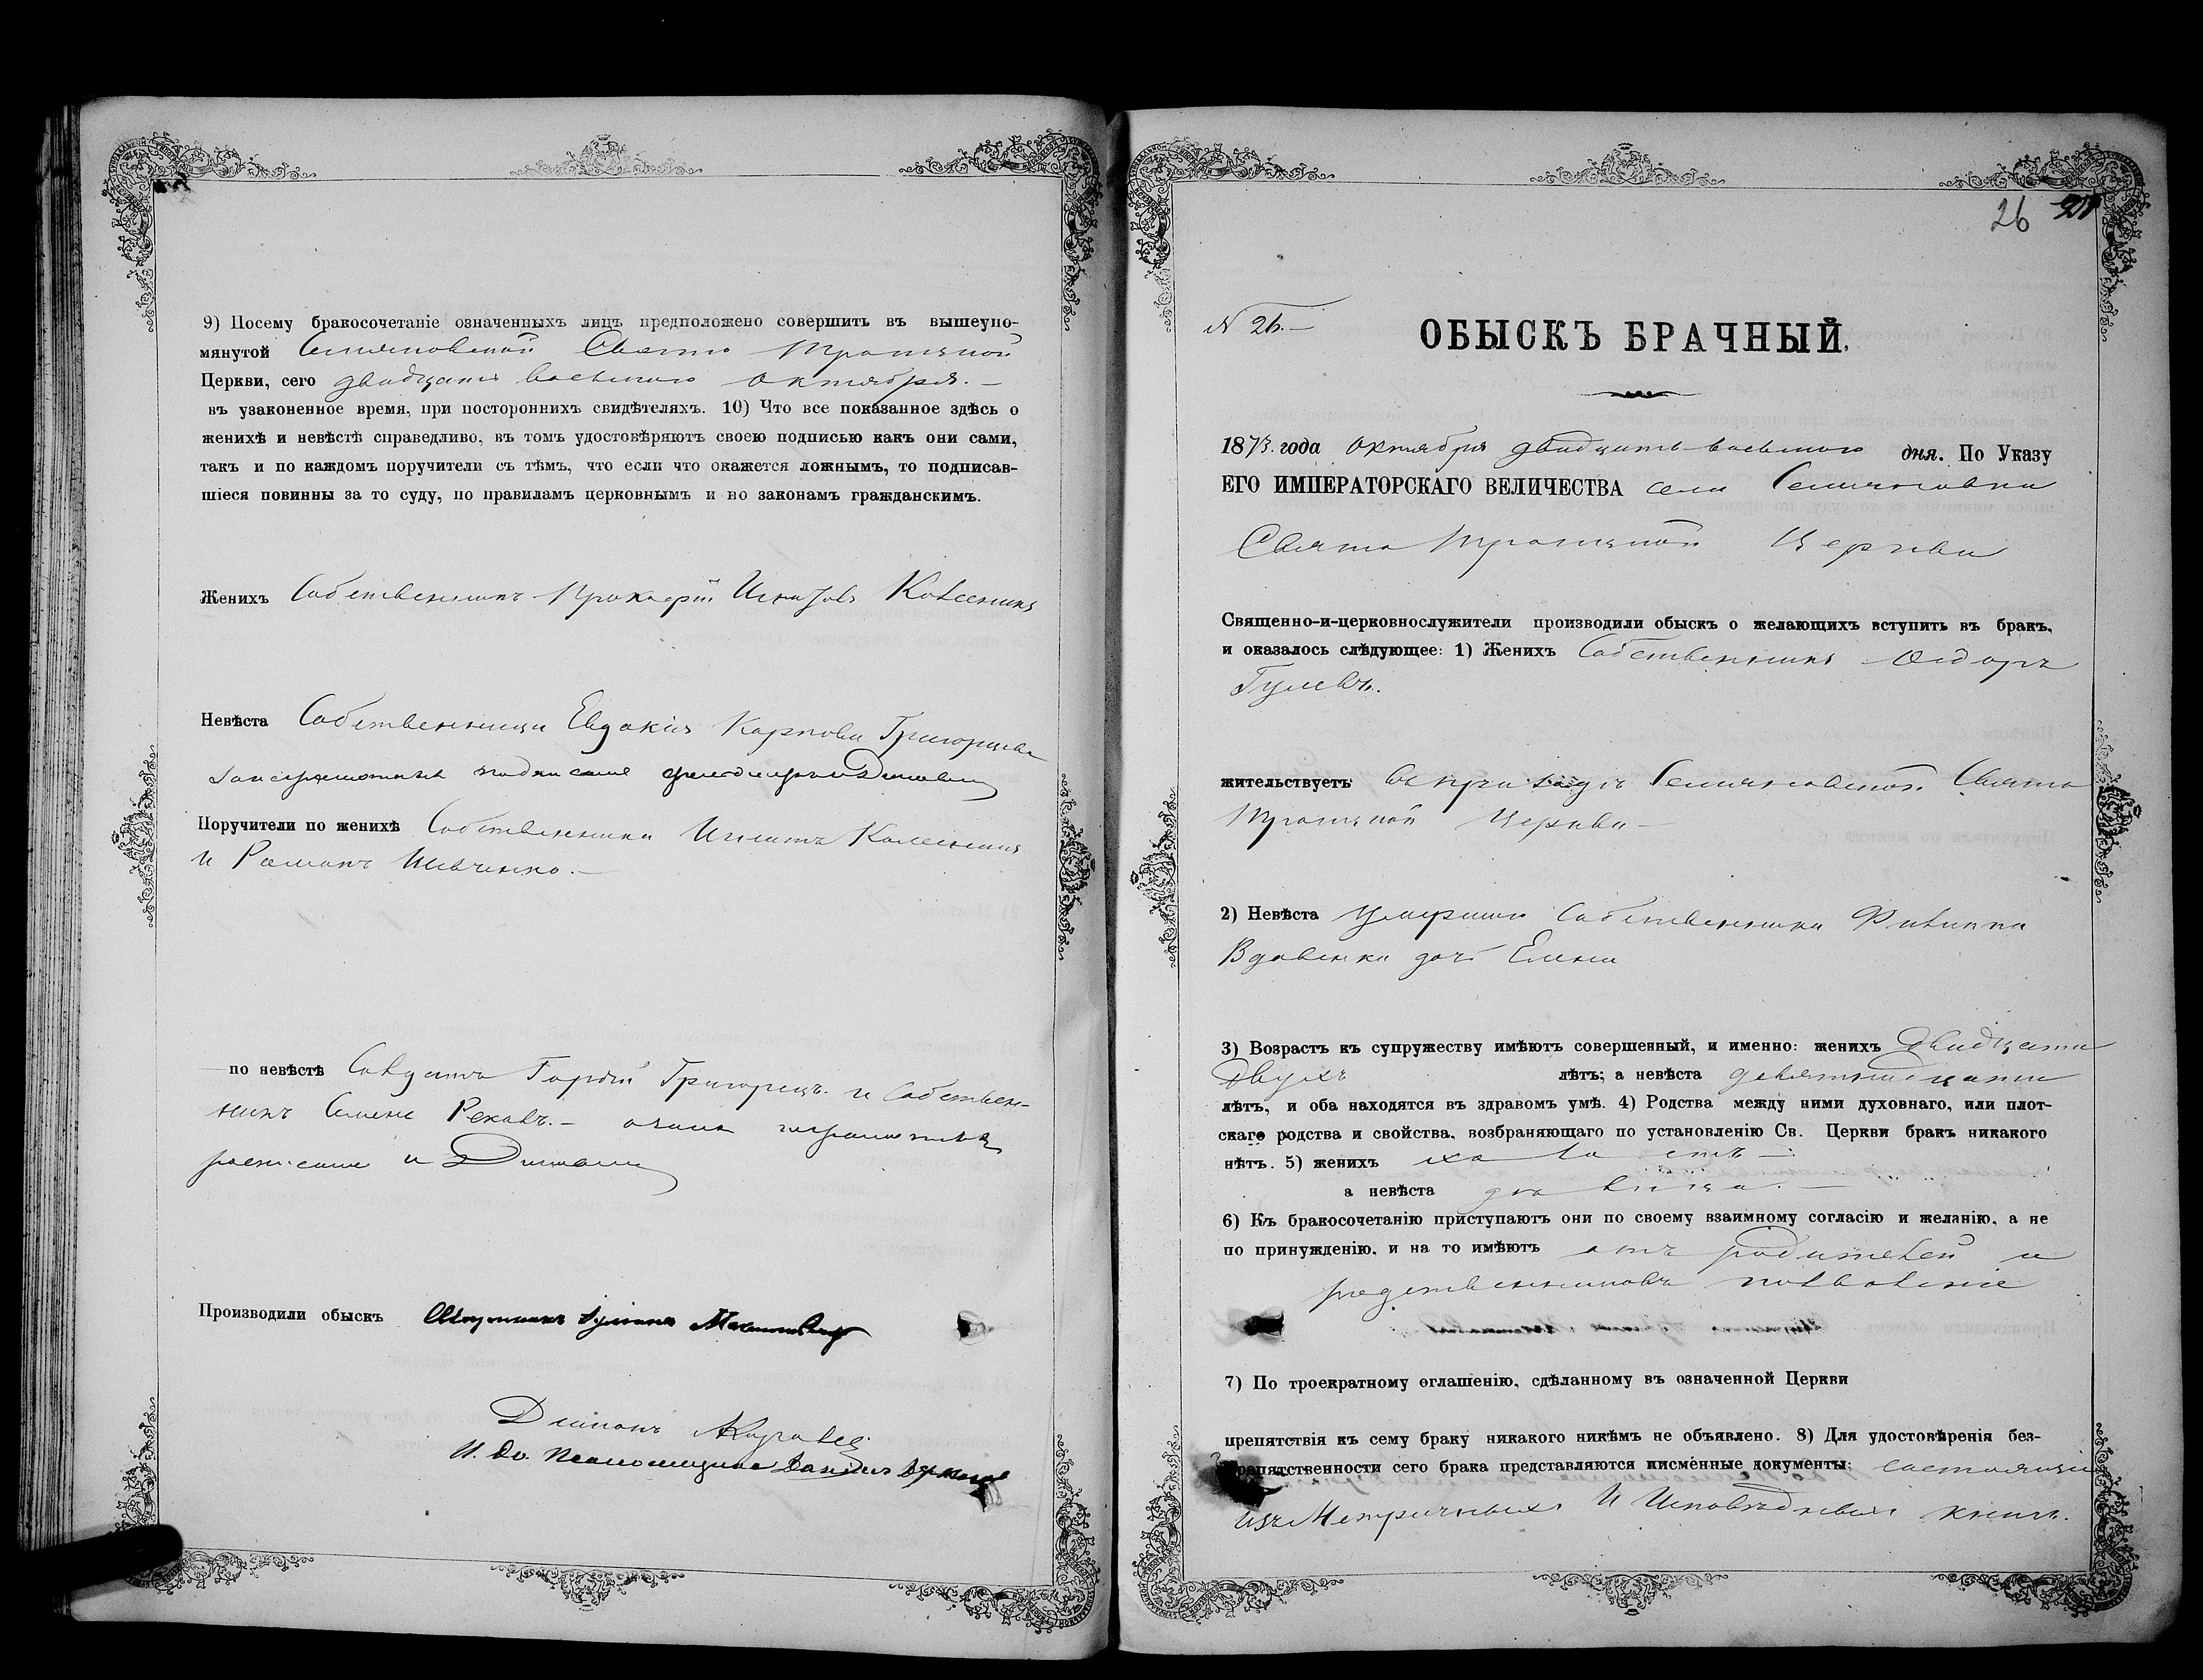 9) Посему бракосочетаніе означенныхъ лицъ предположено совершить въ вышеупо-
мянутой Свято Троицкой
Церкви, сего двадцать восьмого октября. —
въ узаконенное время, при постороннихъ свидѣтеляхъ. 10) Что все показанное здѣсь о
женихѣ и невѣстѣ справедливо, въ томъ удостовѣряютъ своею подписью какъ они сами,
такъ и по каждомъ поручители съ тѣмъ, что если что окажется ложнымъ, то подписав-
шіеся повинны за то суду, по правиламъ церковнымъ и по законамъ гражданскимъ.
Женихъ Собственникъ Прокофій Игнатовъ
Невѣста Собственница Евдокія Карпова
Поручители по женихѣ Собственники Игнатъ
и Романъ Шевченко. —
по невѣстѣ Гордій Григорецъ и Собствен-
никъ Семенъ Рекавъ. —
Производили обыскъ
И. До. Псаломщика
26
N 26. —
ОБЫСКЪ БРАЧНЫЙ.
1873. года октября двадцать восьмого дня. По Указу
ЕГО ИМПЕРАТОРСКАГО ВЕЛИЧЕСТВА села
Свято Троицкой Церкви
Священно-и-церковнослужители производили обыскъ о желающихъ вступить въ бракъ,
и оказалось слѣдующее: 1) Женихъ Собственникъ Ѳедоръ
Гулевъ.
жительствуетъ въ приходѣ Свято
Троицкой Церкви —
2) Невѣста умершаго Собственника Филиппа
Вдовенка доч Елена
3) Возрастъ къ супружеству имѣютъ совершенный, и именно: женихъ Двадцати
двухъ лѣтъ; а невѣста девятнадцати
лѣтъ, и оба находятся въ здравомъ умѣ. 4) Родства между ними духовнаго, или плот-
скаго родства и свойства, возбраняющаго по установленію Св. Церкви бракъ никакого
нѣтъ. 5) женихъ холостъ —
а невѣста дѣвица. —
6) Къ бракосочетанію приступаютъ они по своему взаимному согласію и желанію, а не
по принужденію, и на то имѣютъ отъ родителей и
родственниковъ позволеніе
7) По троекратному оглашенію, сдѣланному въ означенной Церкви
препятствія къ сему браку никакого никѣмъ не объявлено. 8) Для удостовѣренія без-
препятственности сего брака представляются письменные документы:
изъ Метричныхъ И Исповѣдныхъ книгъ.